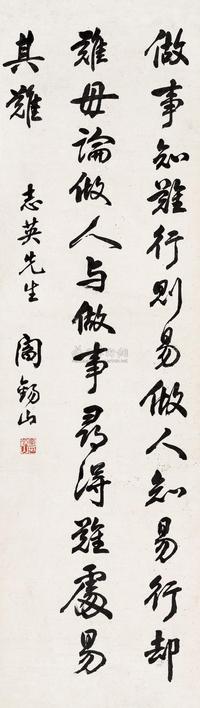 做事知难行则易做人知易行却
难毋論做人与做事尋得難處易
其難
志英先生 閻錫山